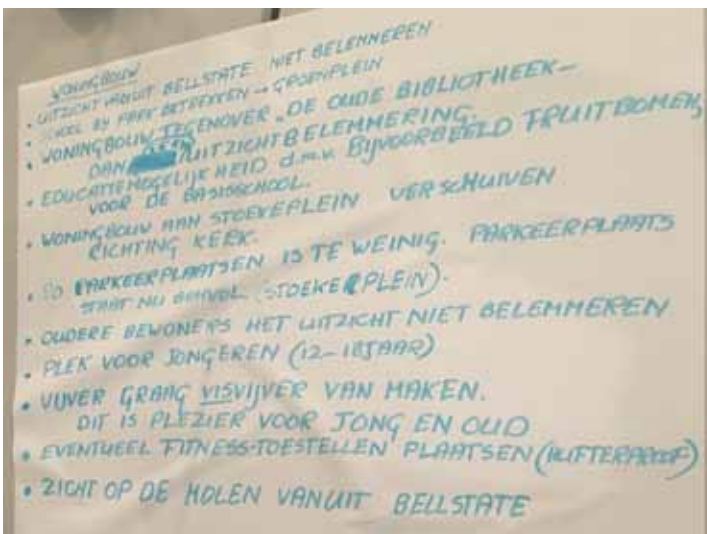 WONINGBOUW
• UITZICHT VANUIT BELLSTATE NIET BELEMMEREN
• SCHOOL BIJ PARK BETREKKEN → GROENPLEIN
• WONINGBOUW TEGENOVER "DE OUDE BIBLIOTHEEK –
DAN GEEN UITZICHTBELEMMERING.
• EDUCATIEMOGELIJKHEID d.m.v. BIJVOORBEELD FRUITBOMEN,
VOOR DE BASISSCHOOL.
• WONINGBOUW AAN STOEKEPLEIN VERSCHUIVEN
RICHTING KERK.
• 50 PARKEERPLAATSEN IS TE WEINIG. PARKEERPLAATS
STAAT NU AL VOL (STOEKEPLEIN).
• OUDERE BEWONERS HET UITZICHT NIET BELEMMEREN
• PLEK VOOR JONGEREN (12-18JAAR)
• VIJVER GRAAG VISVIJVER VAN MAKEN.
DIT IS PLEZIER VOOR JONG EN OUD
• EVENTUEEL FITNESS-TOESTELLEN PLAATSEN (HUFTERPROOF)
• ZICHT OP DE MOLEN VANUIT BELLSTATE